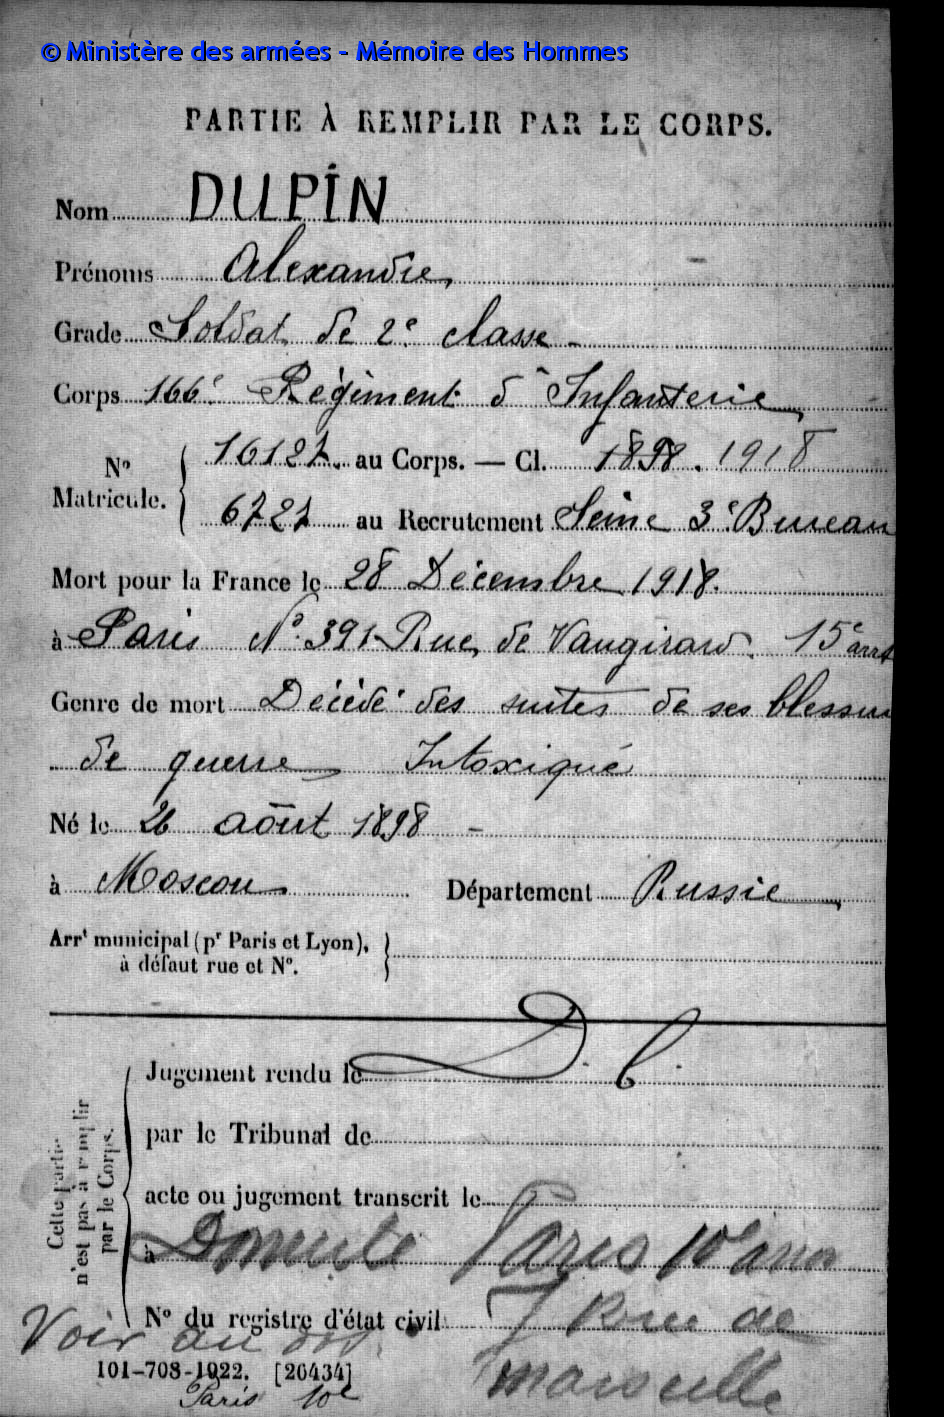 © Ministère des armées - Mémoire des Hommes
PARTIE À REMPLIR PAR LE CORPS.
Nom DUPIN
Prénoms Alexandre
Grade Soldat de 2e classe -
Corps 166e Régiment d'Infanterie
No Matricule. { 16127 au Corps. — Cl. 1898. 1918
6727 au Recrutement Seine 3e Bureau
Mort pour la France le 28 Décembre 1918.
à Paris No 391 Rue de Vaugirard. 15e arrt
Genre de mort Décédé des suites de ses blessu
de guerre Intoxiqué
Né le 26 août 1898 -
à Moscou Département Russie
Arrt municipal (pr Paris et Lyon), }
à défaut rue et No.
Cette partie
n'est pas à remplir
par le Corps.
Jugement rendu le D. C.
par le Tribunal de
acte ou jugement transcrit le
à Domicile Paris 10e arr
No du registre d'état civil 7 Rue de
Voir au dos.
Marseille
101-708-1922. [26434]
Paris 10e